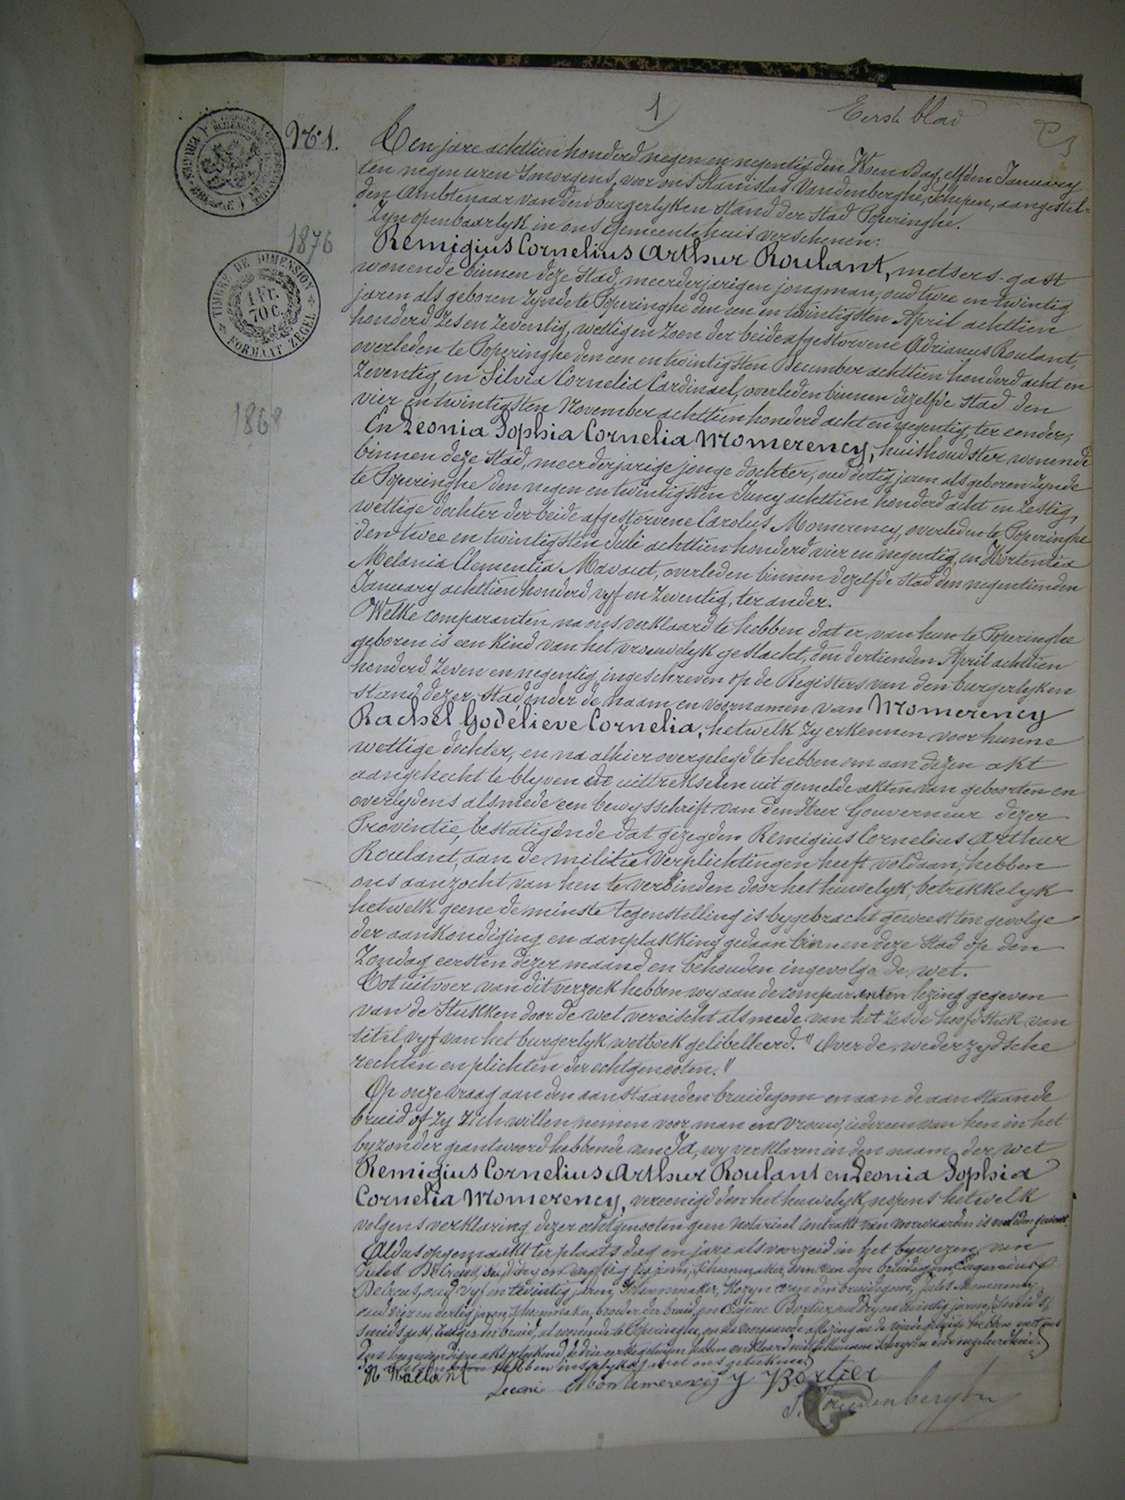 1
Eerste blad
N° 1.
TIMBRE DE DIMENSION
1 FR.
70 C.
FORMAAT ZEGEL
1876
1868
Een jare achttien honderd negen en negentig den Woensdag, elfden January
ten negen uren 's morgens, voor ons Stanislas Vandenberghe, Schepen, aangestel-
den Ambtenaar van den burgerlyken Stand der Stad Poperinghe.
Zyn openbaarlyk in ons Gemeentehuis verschenen:
Remigius Cornelius Arthur Roulant, metsers-gast
wonende binnen deze Stad, meerderjarigen jongman, oud twee en twintig
jaren als geboren zynde te Poperinghe den een en twintigsten April achttien
honderd zes en zeventig, wettigen zoon der beide afgestorvene Adrianus Roulant,
overleden te Poperinghe den een en twintigsten December achttien honderd acht en
zeventig, en Silvia Cornelia Cardinael, overleden binnen dezelfde Stad den
vier en twintigsten November achttien honderd acht en negentig, ter eender;
En Leonia Sophia Cornelia Momerency, huishoudster, wonende
binnen deze Stad, meerderjarige jonge dochter, oud dertig jaren als geboren zynde
te Poperinghe den negen en twintigsten Juny achttien honderd acht en zestig,
wettige dochter der beide afgestorvene Carolus Momerency, overleden te Poperinghe
den twee en twintigsten Juli achttien honderd vier en negentig, en Hortentia
Melania Clementia Mavaut, overleden binnen dezelfde Stad den negentienden
January achttien honderd vyf en zeventig, ter ander.
Welke comparanten na ons verklaard te hebben dat er van hun te Poperinghe
geboren is een kind van het vrouwelyk geslacht, den dertienden April achttien
honderd zeven en negentig, ingeschreven op de Registers van den burgerlyken
stand dezer Stad onder de naam en voornamen van Momerency
Rachel Godelieve Cornelia, hetwelk zy erkennen voor hunne
wettige dochter, en na alhier overgelegd te hebben om aan dezen akt
aangehecht te blyven de uittrekselen uit gemelde akten van geboorten en
overlydens alsmede een bewysschrift van den Heer Gouverneur dezer
Provintie, bestatigende dat gezegden Remigius Cornelius Arthur
Roulant, aan de militie verplichtingen heeft voldaan, hebben
ons aanzocht van hen te verbinden door het huwelyk, betrekkelyk
hetwelk geene de minste tegenstelling is bygebracht geweest ten gevolge
der aankondiging en aanplakking gedaan binnen deze Stad op den
Zondag eersten dezer maand en behouden ingevolge de wet.
Tot uitvoer van dit verzoek hebben wy aan de comparanten lezing gegeven
van de Stukken door de wet vereischt alsmede van het zesde hoofdstuk van
titel vyf van het burgerlyk wetboek gelibelleerd. "Over de wederzydsche
rechten en plichten der echtgenooten."
Op onze vraag aan den aanstaanden bruidegom en aan de aanstaande
bruid of zy zich willen nemen voor man en vrouw, iedereen van hen in het
byzonder geantwoord hebbende van Ja, wy verklaren in den naam der wet
Remigius Cornelius Arthur Roulant en Leonia Sophia
Cornelia Momerency, vereenigd door het huwelyk, nopens hetwelk
volgens verklaring dezer echtgenooten geen Notarieel Contrakt van voorwaarden is
Aldus opgemaakt ter plaats dag en jare als voorzeid in het bywezen van
Jules
oud vyf en zeventig jaren, Schoenmaker, Kozyn van den bruidegom, Jules Momerency,
oud en dertig jaren, broeder der bruid, en Bortier oud drij en twintig jaren,
der bruid, al wonende te Poperinghe, en na voorgaande aflezing
hebben verklaard
hebben met ons geteekend.
Leonie Momerency J Bortier
S. Vandenberghe